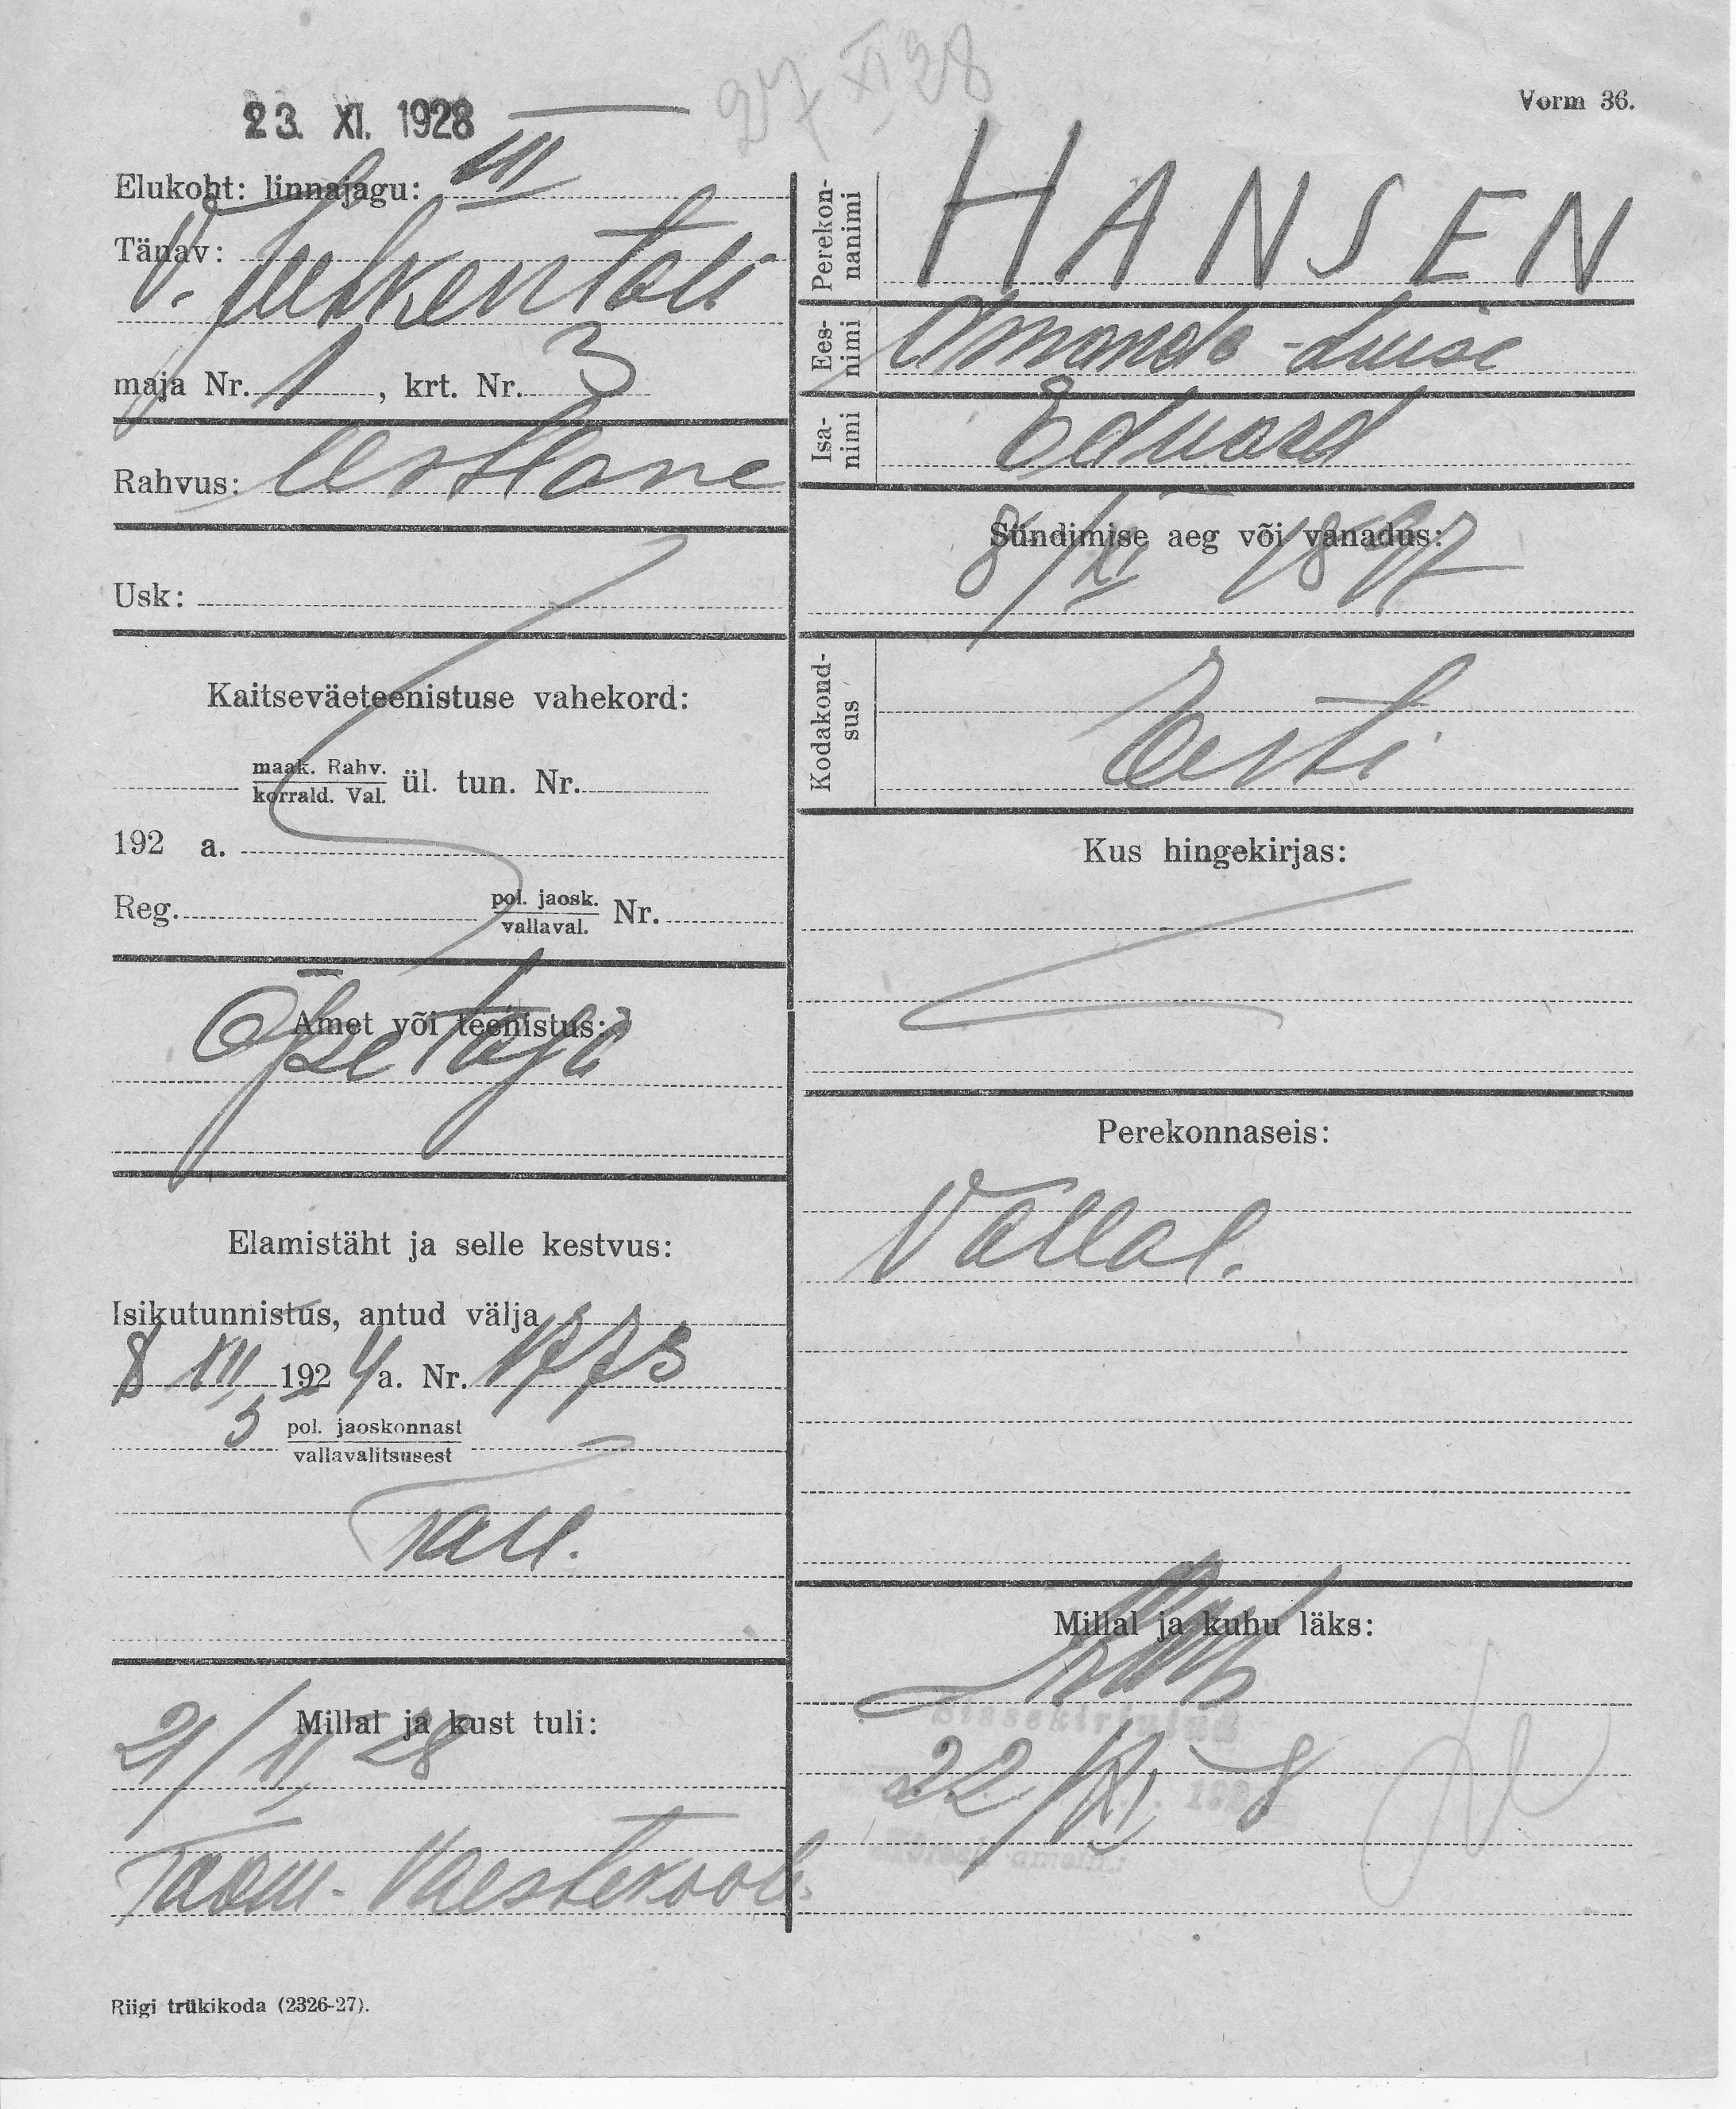 27 XI 28
23. XI. 1928
Vorm 36.
Elukoht: linnajagu: III
Tänav: V. Juhkentali
maja Nr. 1, krt. Nr. 3
Rahvus: eestlane
Usk:
Kaitseväeteenistuse vahekord:
maak. Rahv.
korrald. Val. ül. tun. Nr.
192 a.
Reg. pol. jaosk.
vallaval. Nr.
Amet või teenistus:
Õpetaja
Elamistäht ja selle kestvus:
Isikutunnistus, antud välja
8 XII 1924 a. Nr. 1773
5 pol. jaoskonnast
vallavalitsusest
Tall.
Millal ja kust tuli:
21/XI 28
Taom- Vaestekooli
Riigi trükikoda (2326-27).
Perekonnanimi HANSEN
Eesnimi Amanda-Luise
Isanimi Eduard
Sündimise aeg või vanadus:
8/XI 1897
Kodakondsus Eesti
Kus hingekirjas:
Perekonnaseis:
Vallal.
Millal ja kuhu läks:
Sissekirjutud
22/XI 8